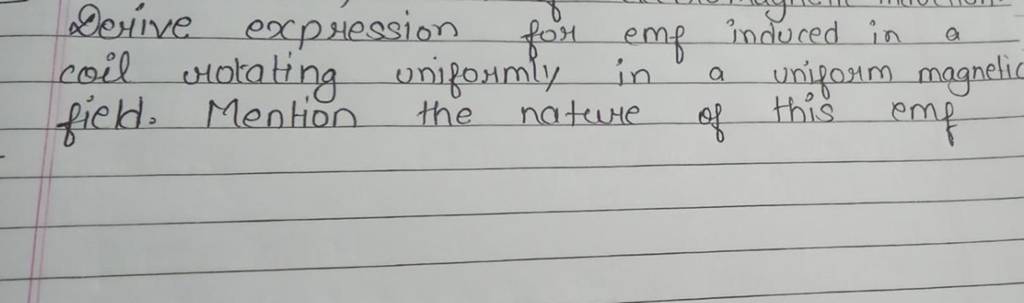 Derive expression for emf induced in a
coil rotating uniformly in a uniform magnetic
field. Mention the nature of this emf